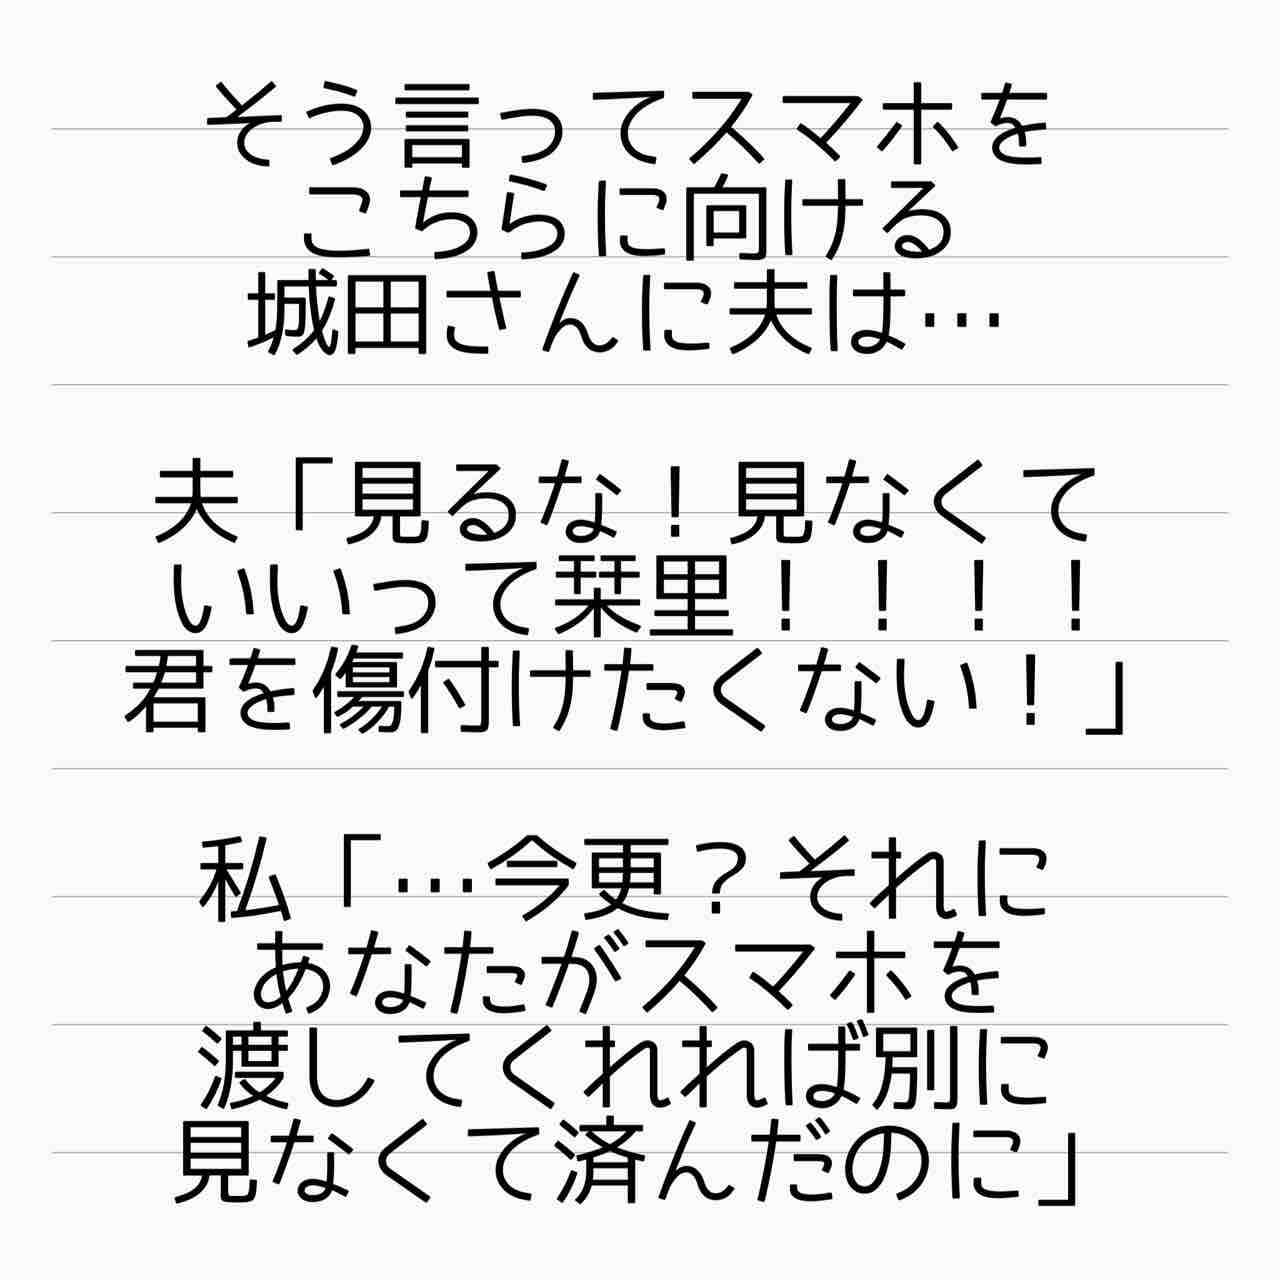 そう言ってスマホを
こちらに向ける
城田さんに夫は…
夫「見るな！見なくて
いいって栞里！！！！
君を傷付けたくない！」
私「…今更？それに
あなたがスマホを
渡してくれれば別に
見なくて済んだのに」